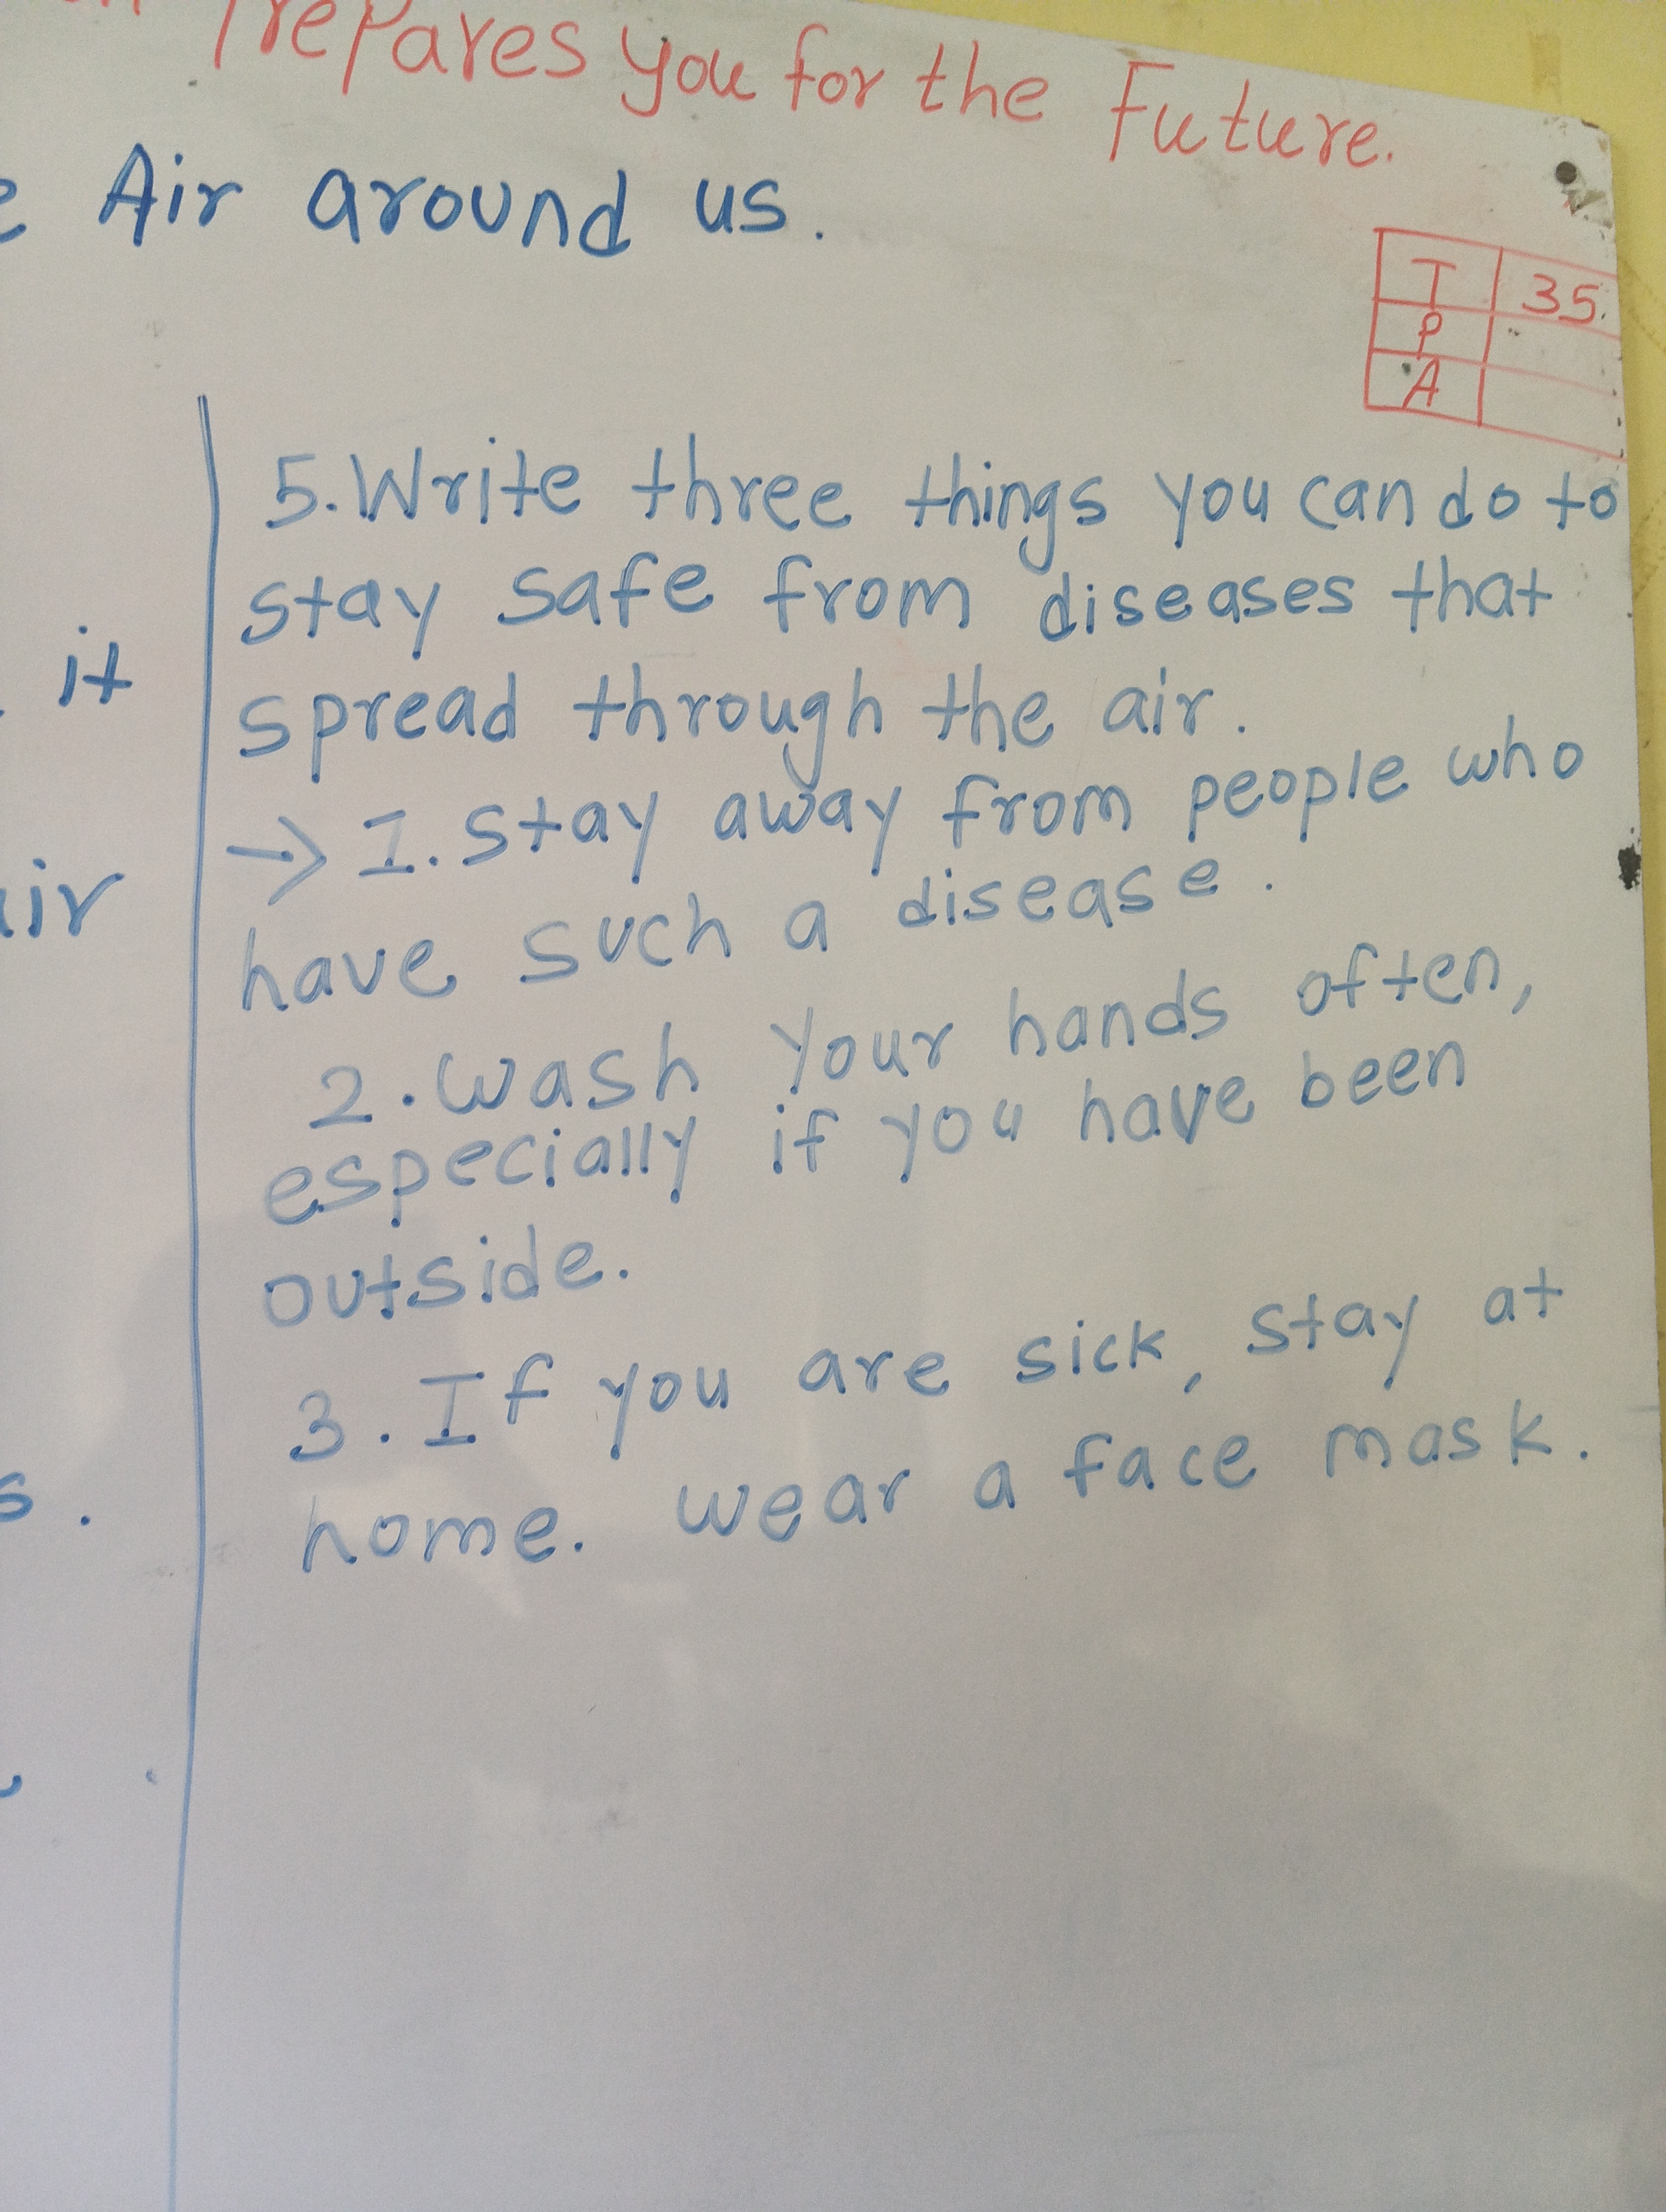 Prepares you for the Future.
Air around us.
T 35.
P
A
it
5. Write three things you can do to
stay safe from diseases that
spread through the air.
→ 1. stay away from people who
have such a disease.
2. wash your hands often,
especially if you have been
outside.
3. If you are sick, stay at
home. wear a face mask.